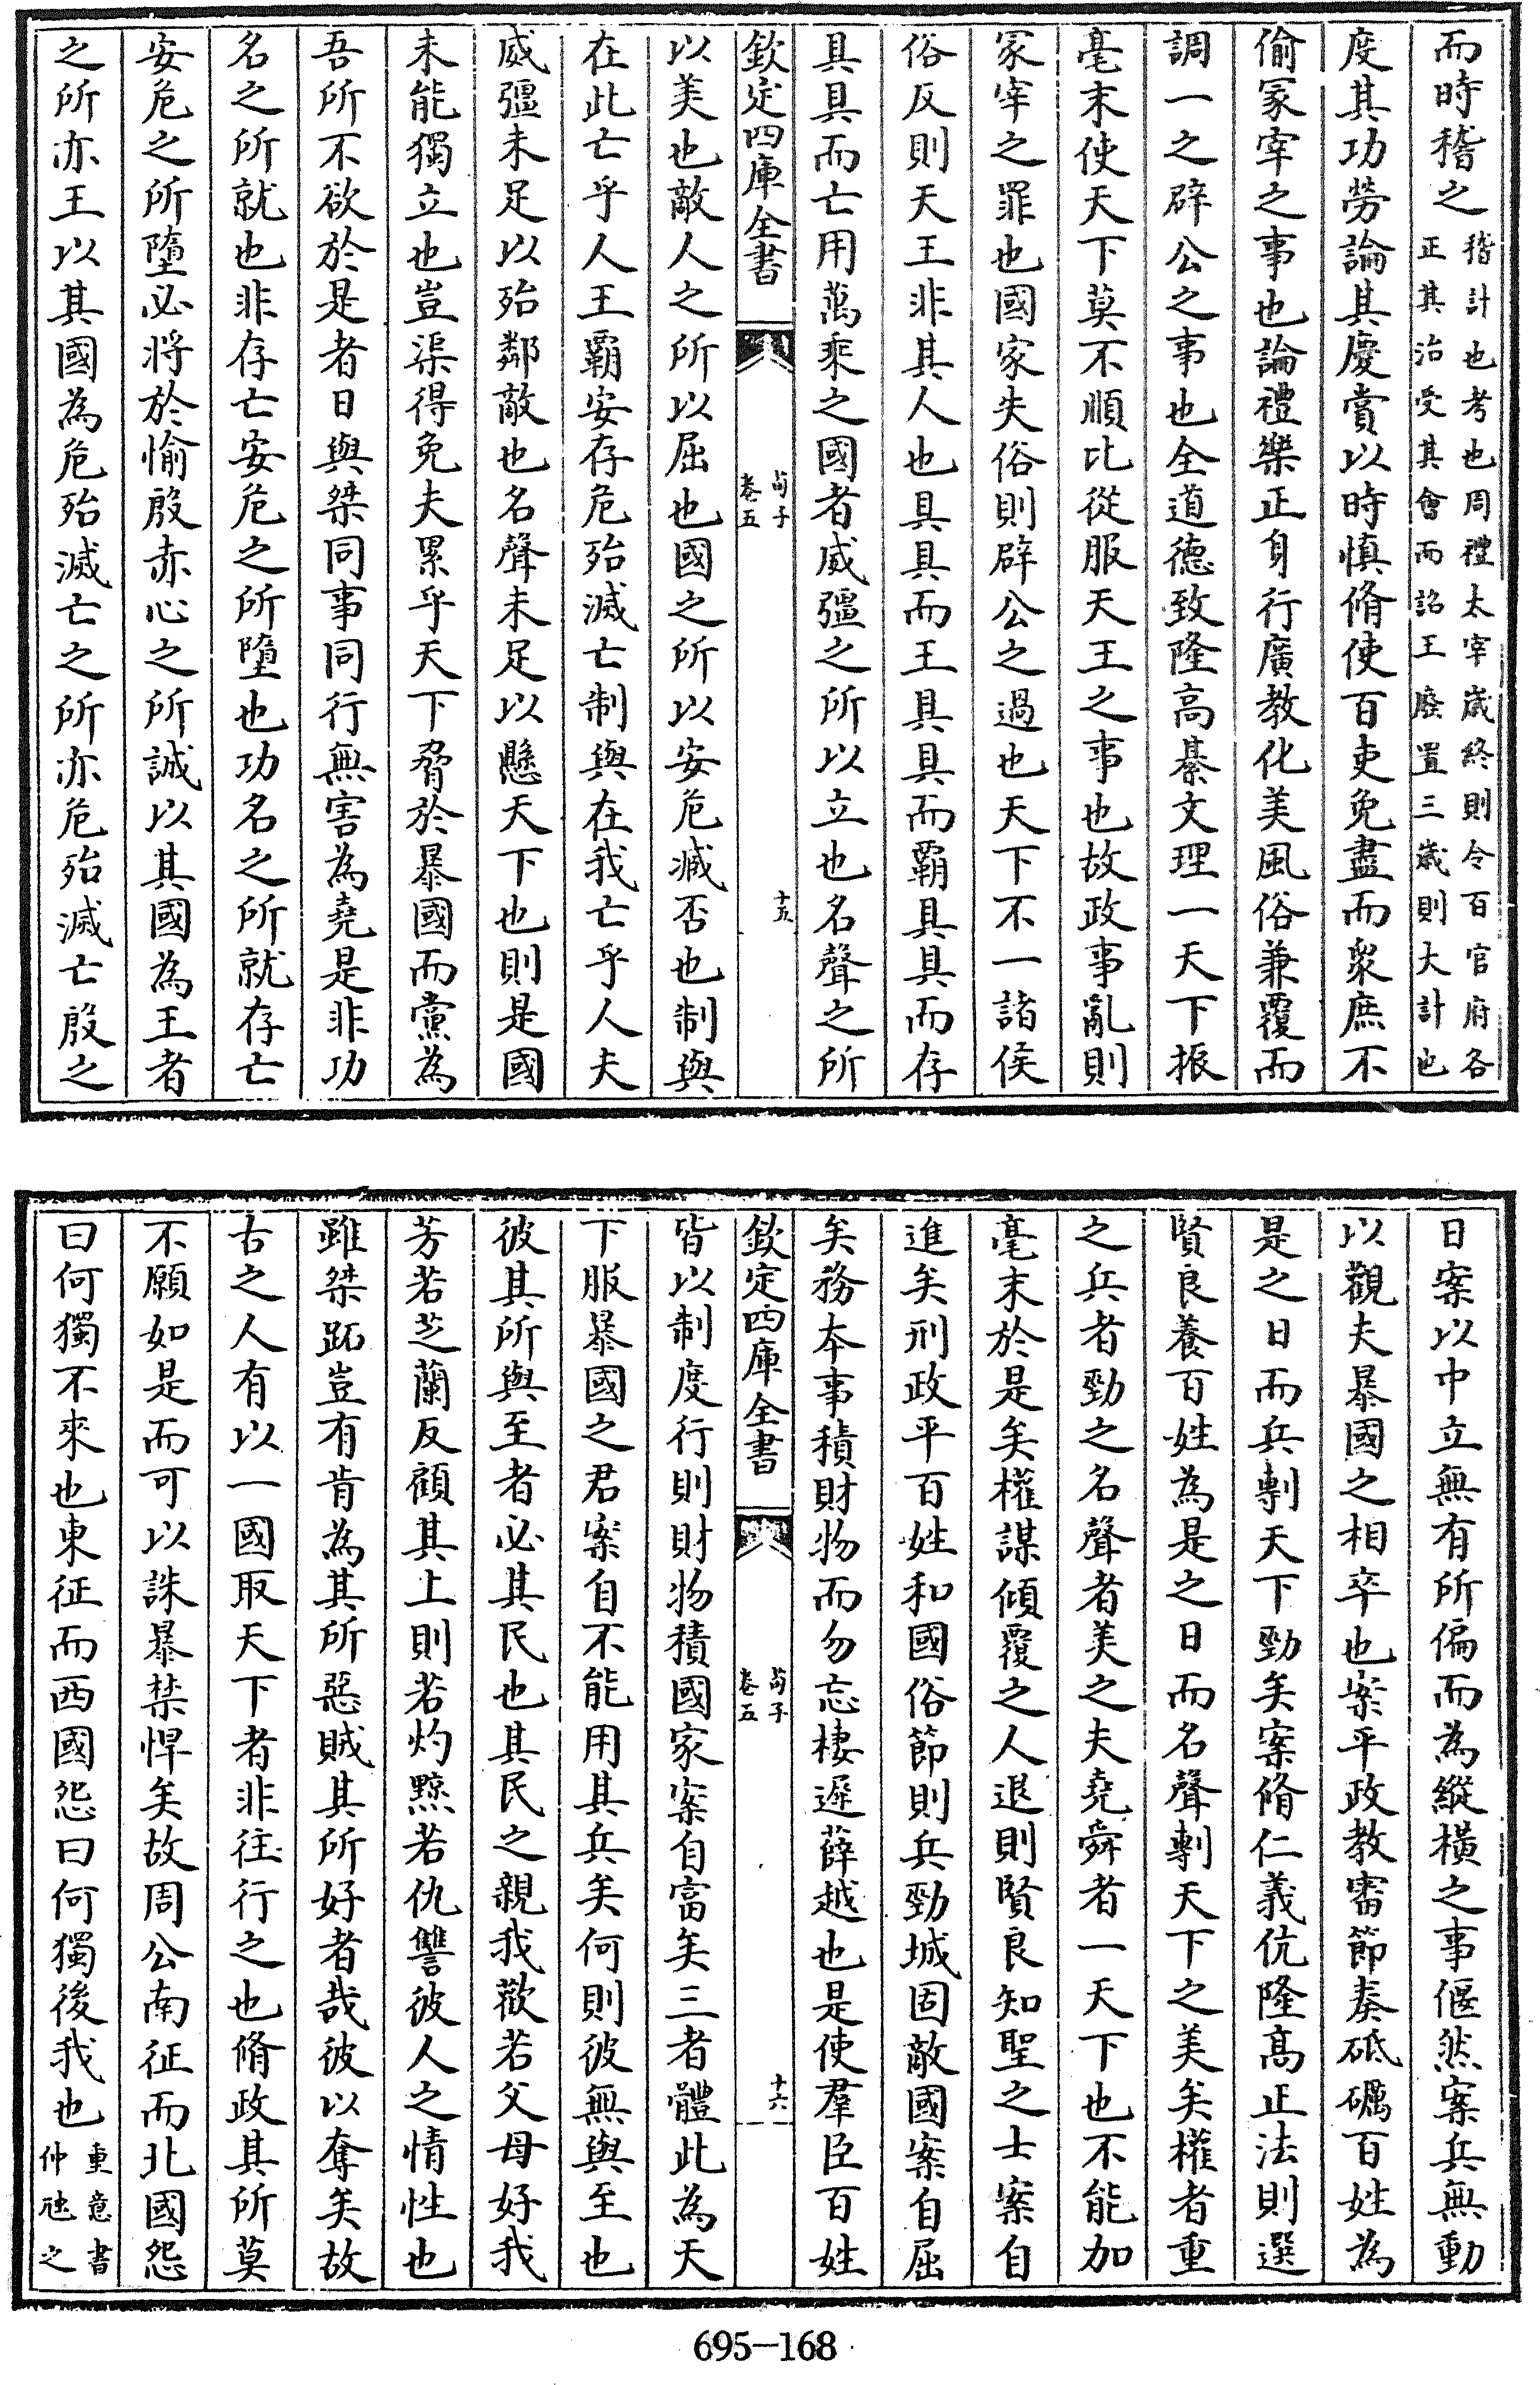 而時稽之稽計也考也周禮太宰歲終則令百官府各
正其治受其會而詔王廢置三歲則大計也
度其功勞論其慶賞以時慎脩使百吏免盡而衆庶不
偷冢宰之事也論禮樂正身行廣教化美風俗兼覆而
調一之辟公之事也全道德致隆高綦文理一天下振
毫末使天下莫不順比從服天王之事也故政事亂則
冢宰之罪也國家失俗則辟公之過也天下不一諸侯
俗反則天王非其人也具具而王具具而霸具具而存
具具而亡用萬乘之國者威彊之所以立也名聲之所
欽定四庫全書
荀子
卷五
十五
以美也敵人之所以屈也國之所以安危臧否也制與
在此亡乎人王霸安存危殆滅亡制與在我亡乎人夫
威彊未足以殆鄰敵也名聲未足以懸天下也則是國
未能獨立也豈渠得免夫累乎天下脅於暴國而黨為
吾所不欲於是者日與桀同事同行無害為堯是非功
名之所就也非存亡安危之所墮也功名之所就存亡
安危之所墮必將於愉殷赤心之所誠以其國為王者
之所亦王以其國為危殆滅亡之所亦危殆滅亡殷之
日案以中立無有所偏而為縱橫之事偃然案兵無動
以觀夫暴國之相卒也案平政教審節奏砥礪百姓為
是之日而兵剸天下勁矣案脩仁義伉隆高正法則選
賢良養百姓為是之日而名聲剸天下之美矣權者重
之兵者勁之名聲者美之夫堯舜者一天下也不能加
毫末於是矣權謀傾覆之人退則賢良知聖之士案自
進矣刑政平百姓和國俗節則兵勁城固敵國案自屈
矣務本事積財物而勿忘棲遲薛越也是使羣臣百姓
欽定四庫全書
荀子
卷五
十六
皆以制度行則財物積國家案自富矣三者體此為天
下服暴國之君案自不能用其兵矣何則彼無與至也
彼其所與至者必其民也其民之親我歡若父母好我
芳若芝蘭反顧其上則若灼黥若仇讐彼人之情性也
雖桀跖豈有肯為其所惡賊其所好者哉彼以奪矣故
古之人有以一國取天下者非往行之也脩政其所莫
不願如是而可以誅暴禁悍矣故周公南征而北國怨
曰何獨不來也東征而西國怨曰何獨後我也重意書
仲虺之
695-168